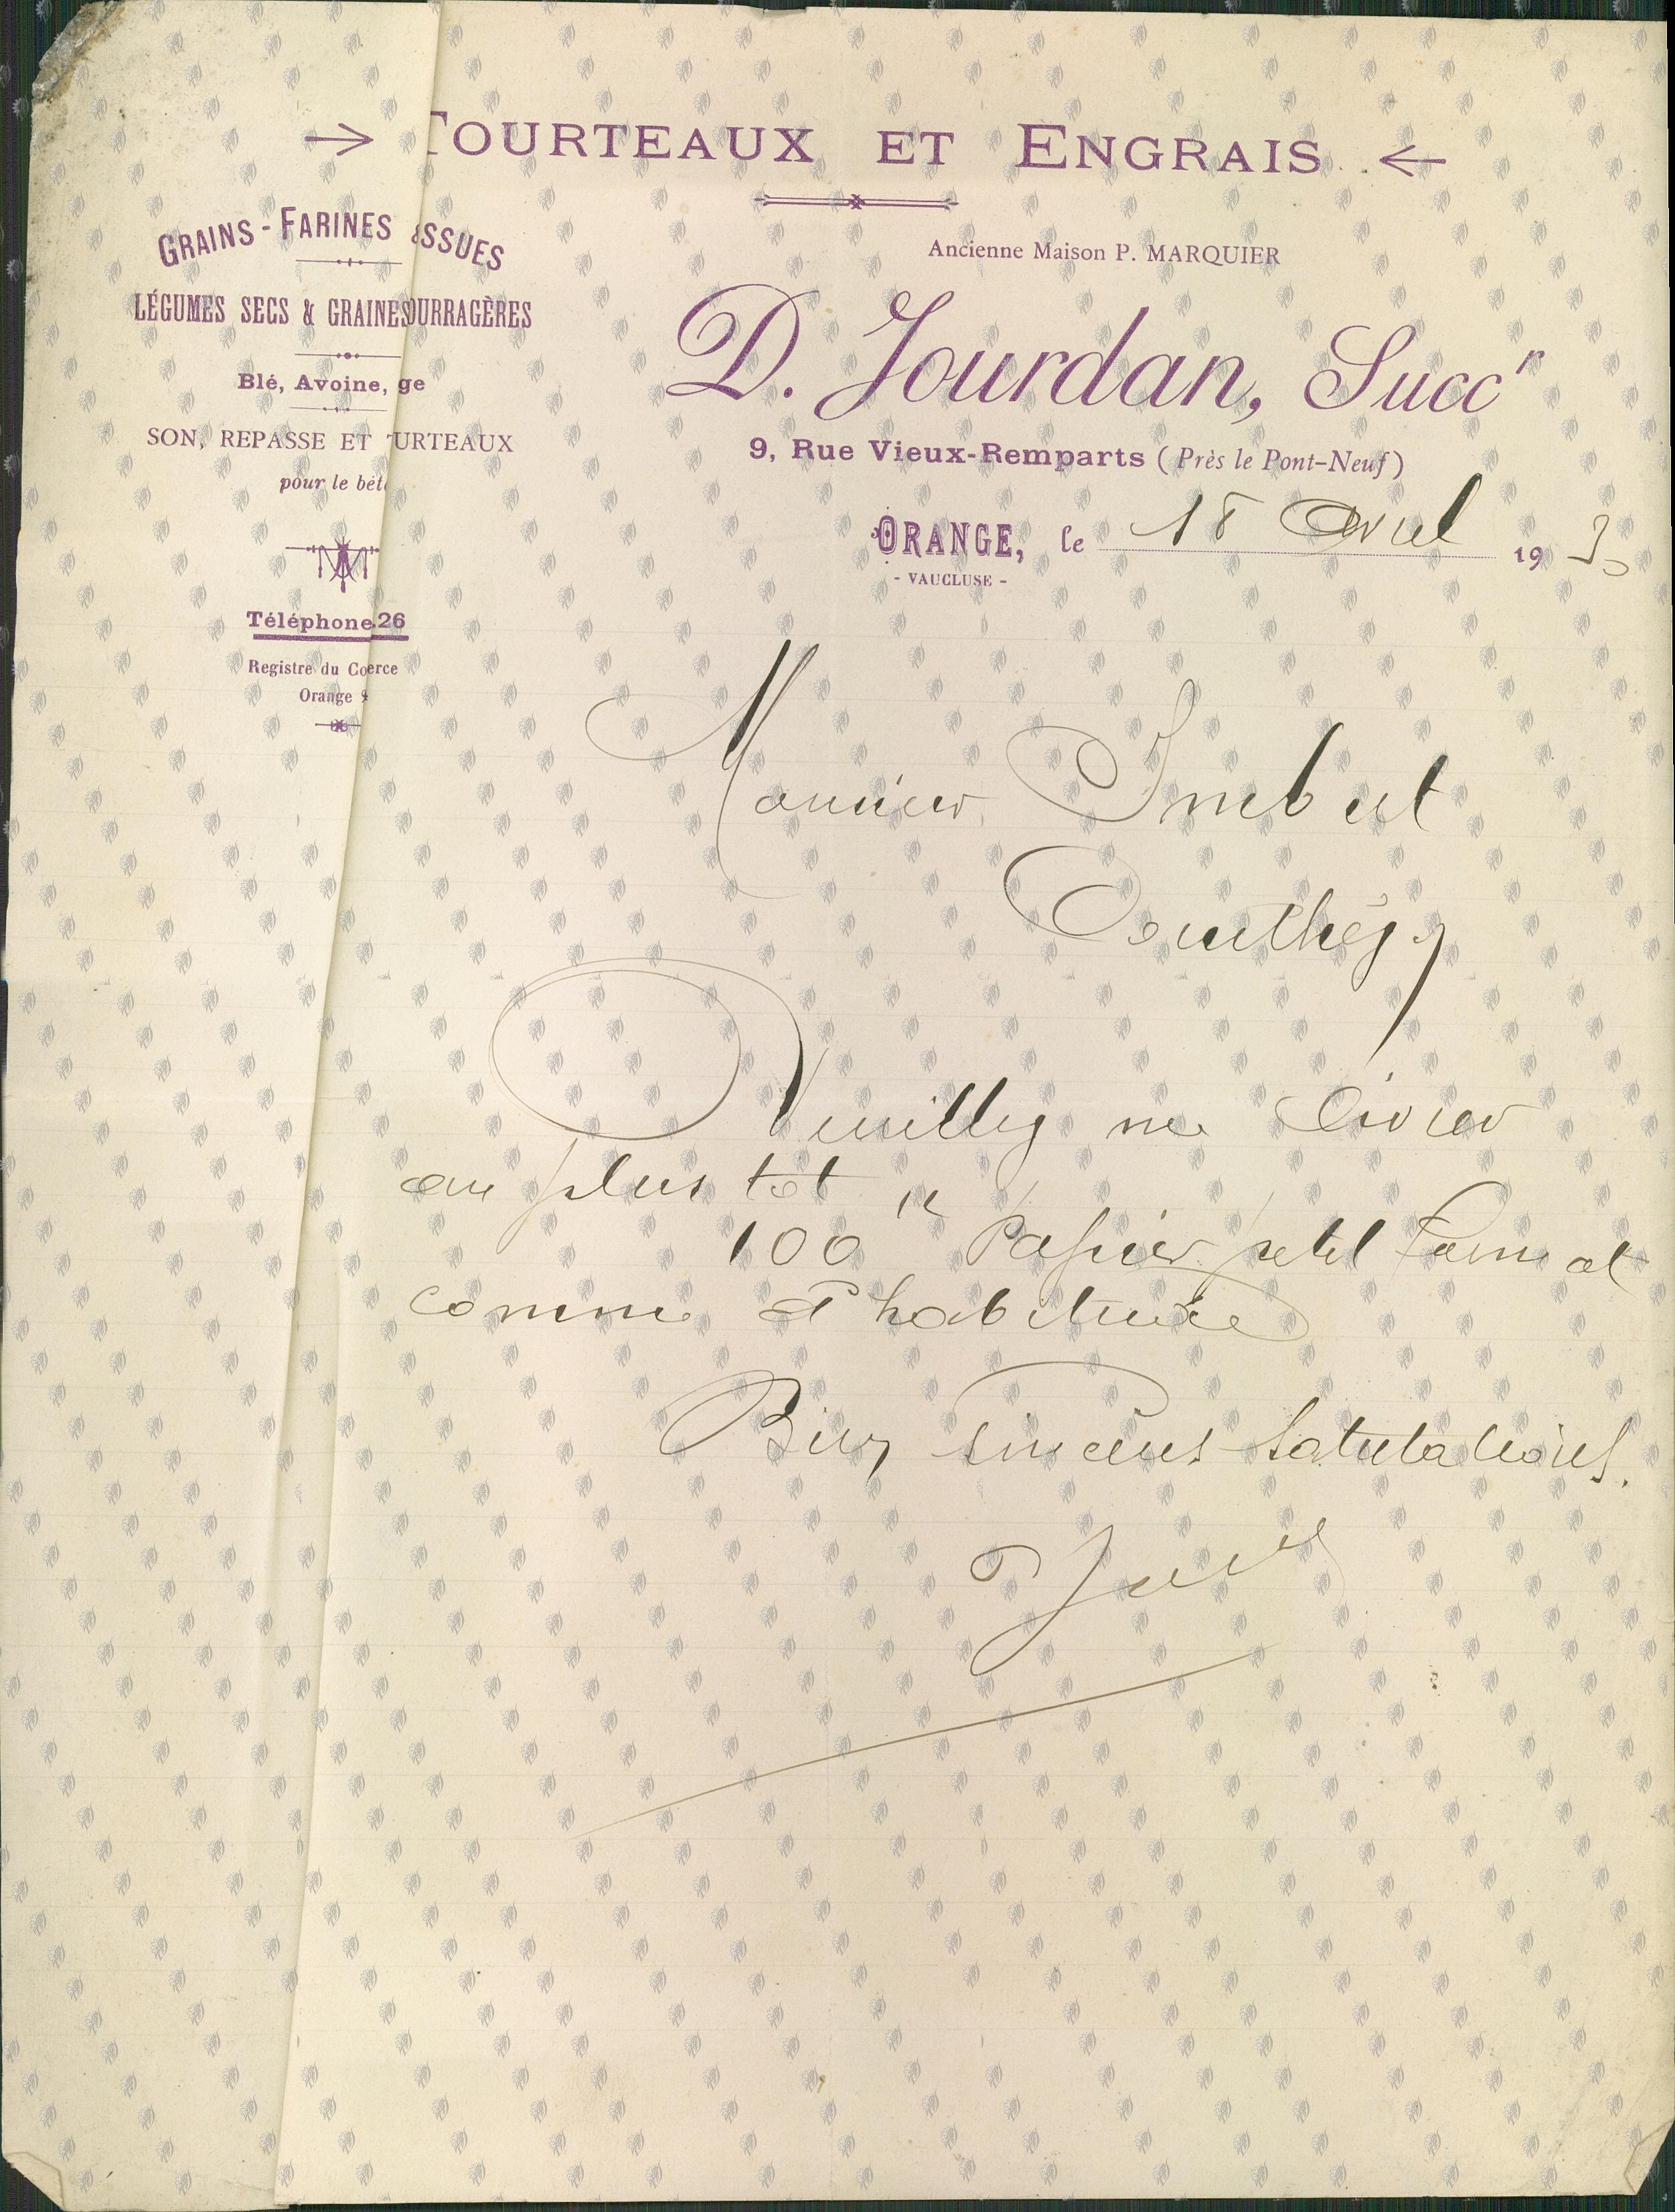 TOURTEAUX ET ENGRAIS
GRAINS - FARINES & ISSUES
LÉGUMES SECS & GRAINES OURRAGÈRES
Blé, Avoine, ge
SON, REPASSE ET URTEAUX
pour le bét
Téléphone 26
Registre du Co erce
Orange
Ancienne Maison P. MARQUIER
D. Jourdan, Succr
9, Rue Vieux-Remparts (Près le Pont-Neuf)
ORANGE, le 18 Avril 19
- VAUCLUSE -
Monsieur Imbert
Veuillez me livrer
au plus tôt
100 K Papier petit Format
comme d'habitude
Bien sincères salutations.